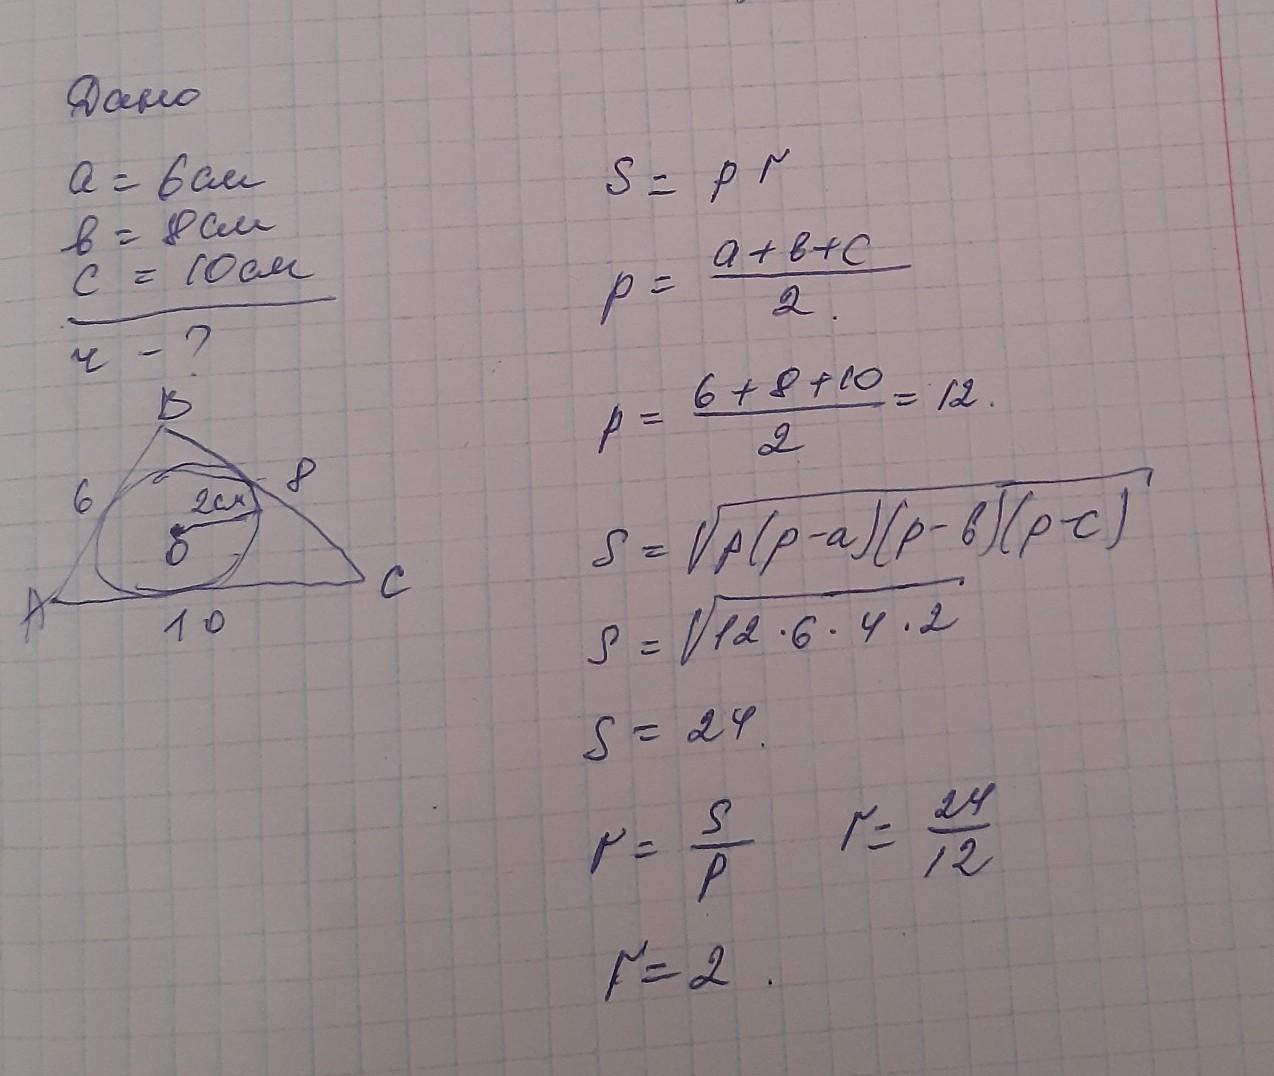 Дано
a = 6 см
в = 8 см
c = 10 см
r - ?
B
6
8
2 см
O
A
C
10
S = p r
p = (a + в + c) / 2.
p = (6 + 8 + 10) / 2 = 12.
S = √(p(p-a)(p-в)(p-c))
S = √(12 · 6 · 4 · 2)
S = 24.
r = S / p r = 24 / 12
r = 2.